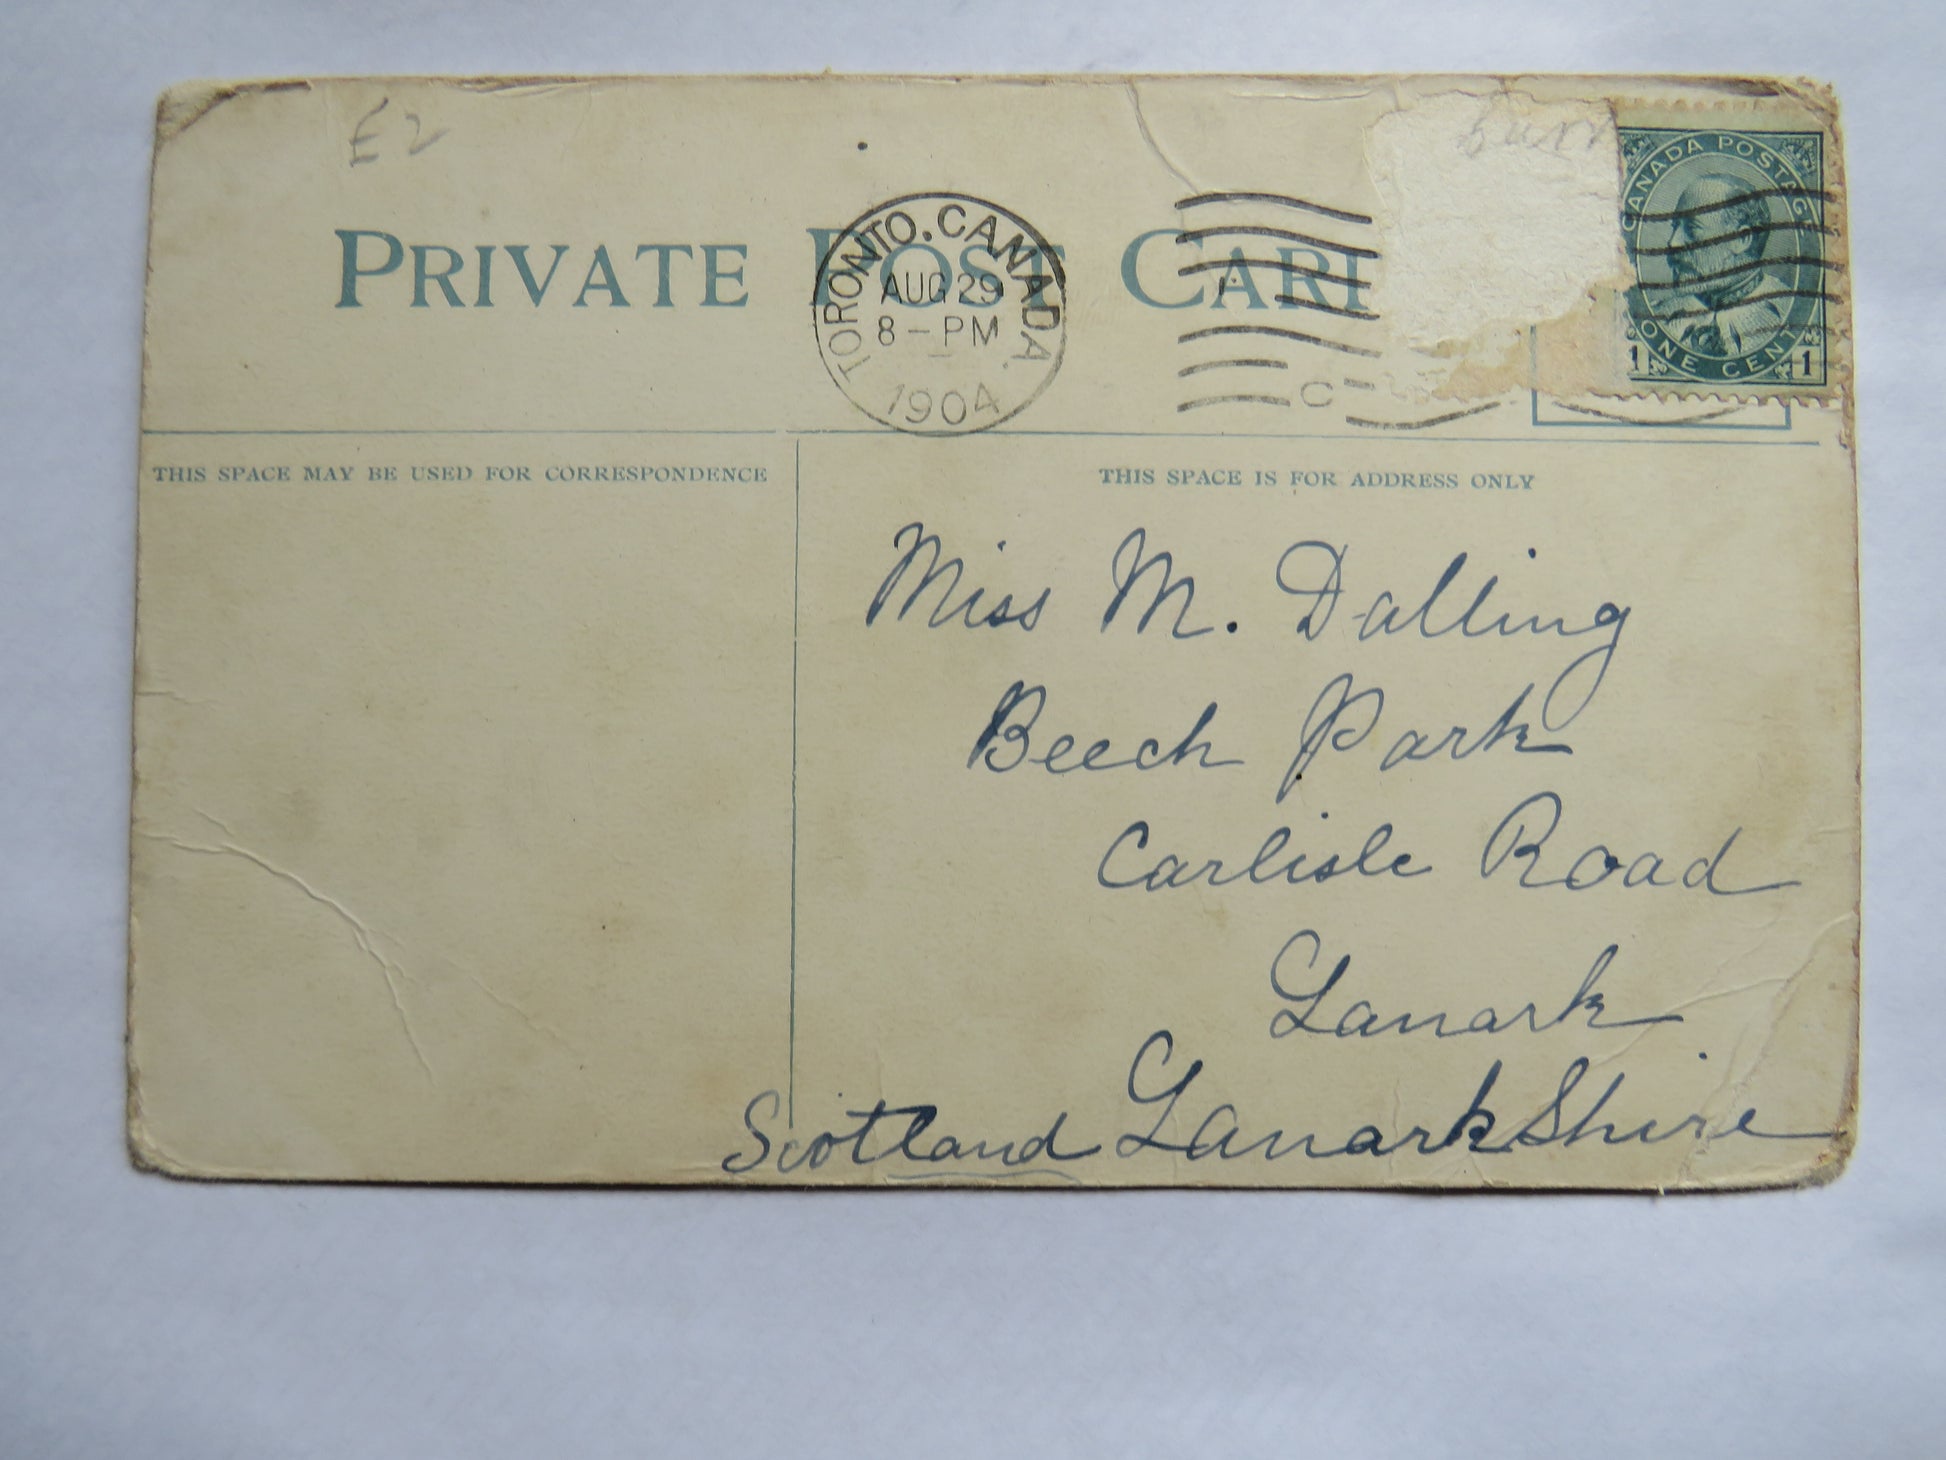 £2
TORONTO. CANADA.
AUG 29
8 - PM
1904
PRIVATE POST CARD
CANADA POSTAGE
1 ONE CENT 1
THIS SPACE MAY BE USED FOR CORRESPONDENCE
THIS SPACE IS FOR ADDRESS ONLY
Miss M. Dalling
Beech Park
Carlisle Road
Lanark
Scotland LanarkShire